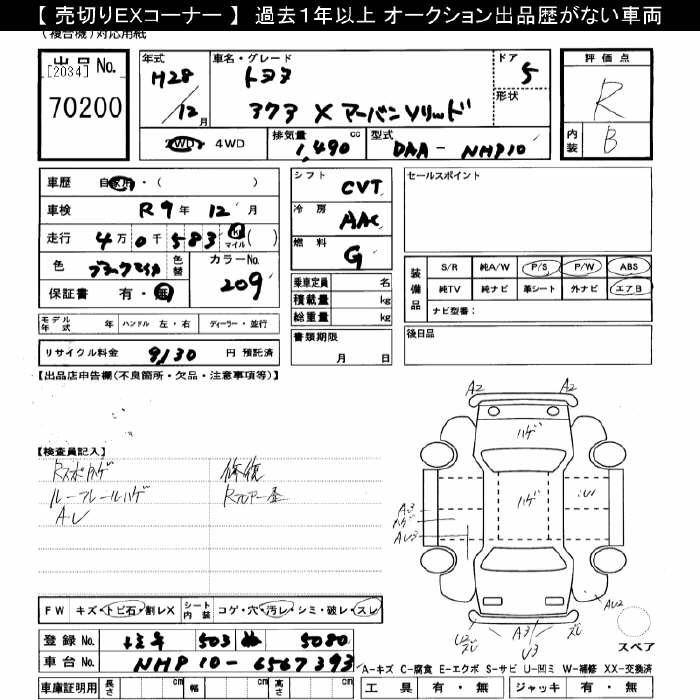 【 売切りEXコーナー 】 過去1年以上 オークション出品歴がない車両
(複合機)対応用紙
出品 No.
[2034]
70200
年式
H28/12月
車名・グレード
トヨタ
アクア X アーバンソリッド
ドア 5
形状
評価点
R
内装
B
2WD・4WD
排気量 1,490 cc
型式 DAA-NHP10
車歴 自家用・( )
車検 R9年 12月
走行 4万 0千 583 km マイル ( )
色 ブラックマイカ
色替
カラーNo. 209
保証書 有・無
シフト CVT
冷房 AAC
燃料 G
乗車定員 名
積載量 kg
総重量 kg
書類期限
月 日
セールスポイント
装備品
S/R 純A/W P/S P/W ABS
純TV 純ナビ 革シート 外ナビ エアB
ナビ型番:
後日品
モデル年式 年 ハンドル 左・右 ディーラー・並行
リサイクル料金 9,130 円 預託済
【出品店申告欄(不良箇所・欠品・注意事項等)】
【検査員記入】
ルーフレールハゲ
AU
修復
FW キズ・トビ石・割レX シート内装 コゲ・穴・汚レ・シミ・破レ・スレ
登録 No. 503 ぬ 5080
車台 No. NHP10-6567393
車庫証明用 長さ cm 幅 cm 高さ cm
A2 A2
ハゲ
ハゲ
A3
ハゲ
AU3
U
AU2
A3
U3
スペア
A-キズ C-腐食 E-エクボ S-サビ U-凹ミ W-補修 XX-交換済
工具 有・無 ジャッキ 有・無